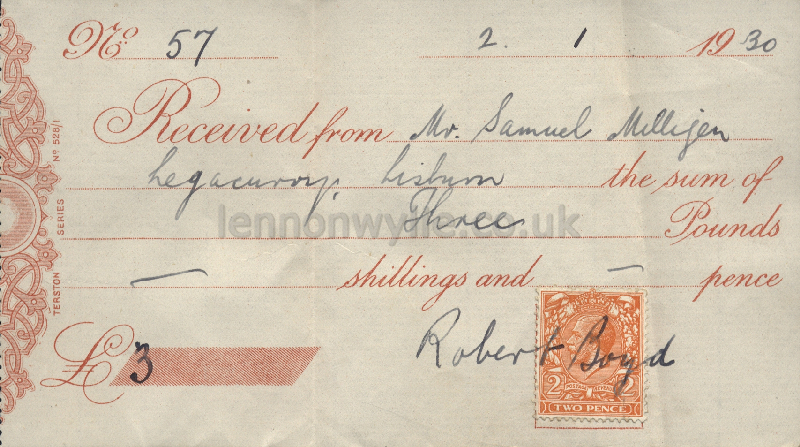 No 57 2. 1 1930
Received from Mr. Samuel Milligen
Legacurry, Lisburn the sum of
Three Pounds
— shillings and — pence
£3 Robert Boyd
2 POSTAGE REVENUE 2
TWO PENCE
TERSTON SERIES No 528/1
lennonwylie.co.uk